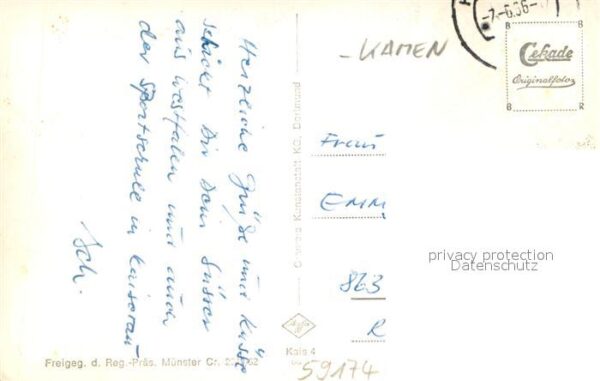 Herzliche Grüße und Küsse
schickt Dir Dein Süsser
aus Westfalen und auch
der Sportschule in Kaiserau
Sch.
- KAMEN
-7.-6.66-
Cekade
Originalfoto
B
R
B
R
Frau
EMM
863
R
privacy protection
Datenschutz
Cramers Kunstanstalt KG, Dortmund
Kais 4
59174
Freigeg. d. Reg.-Präs. Münster Cr.